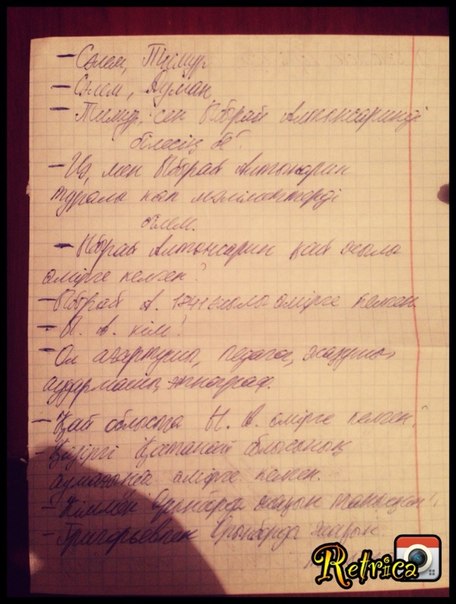 – Сәлем, Тимур
– Сәлем, Адман
– Тимур, сен Ыбрай Алтынсаринді
білесің бе?
– Иә, мен Ыбрай Алтынсарин
туралы көп мәліметтерді
білем.
– Ыбрай Алтынсарин қай жылы
өмірге келген?
– Ыбрай А. 1841 жылы өмірге келген.
– Ы. А. кім?
– Ол ағартушы, педагог, жазушы,
аудармашы, этнограф.
– Қай облыста Ы. А. өмірге келген?
– Қазіргі Қостанай облысының
аумағында өмірге келген.
– Кіммен Орынборда жақын танысқан?
– Григорьевпен Орынборда жақын
Retrica